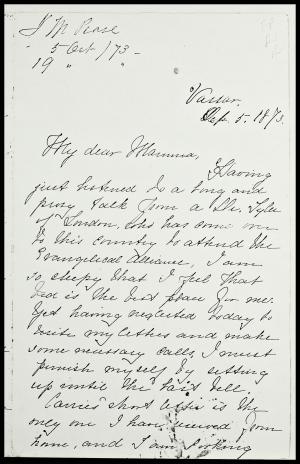 J M Pease
5 Oct /73 -
19 " "
Vassar.
Oct. 5. 1873.
My dear Mamma,
Having
just listened to a long and
prosy talk from a Dr. Tyler
of London, who has come over
to this country to attend the
Evangelical Alliance, I am
so sleepy that I feel that
bed is the best place for me.
Yet having neglected today to
write my letters and make
some necessary calls, I must
punish myself by sitting
up until the last bell.
Carrie's short letter is the
only one I have received from
home, and I am looking